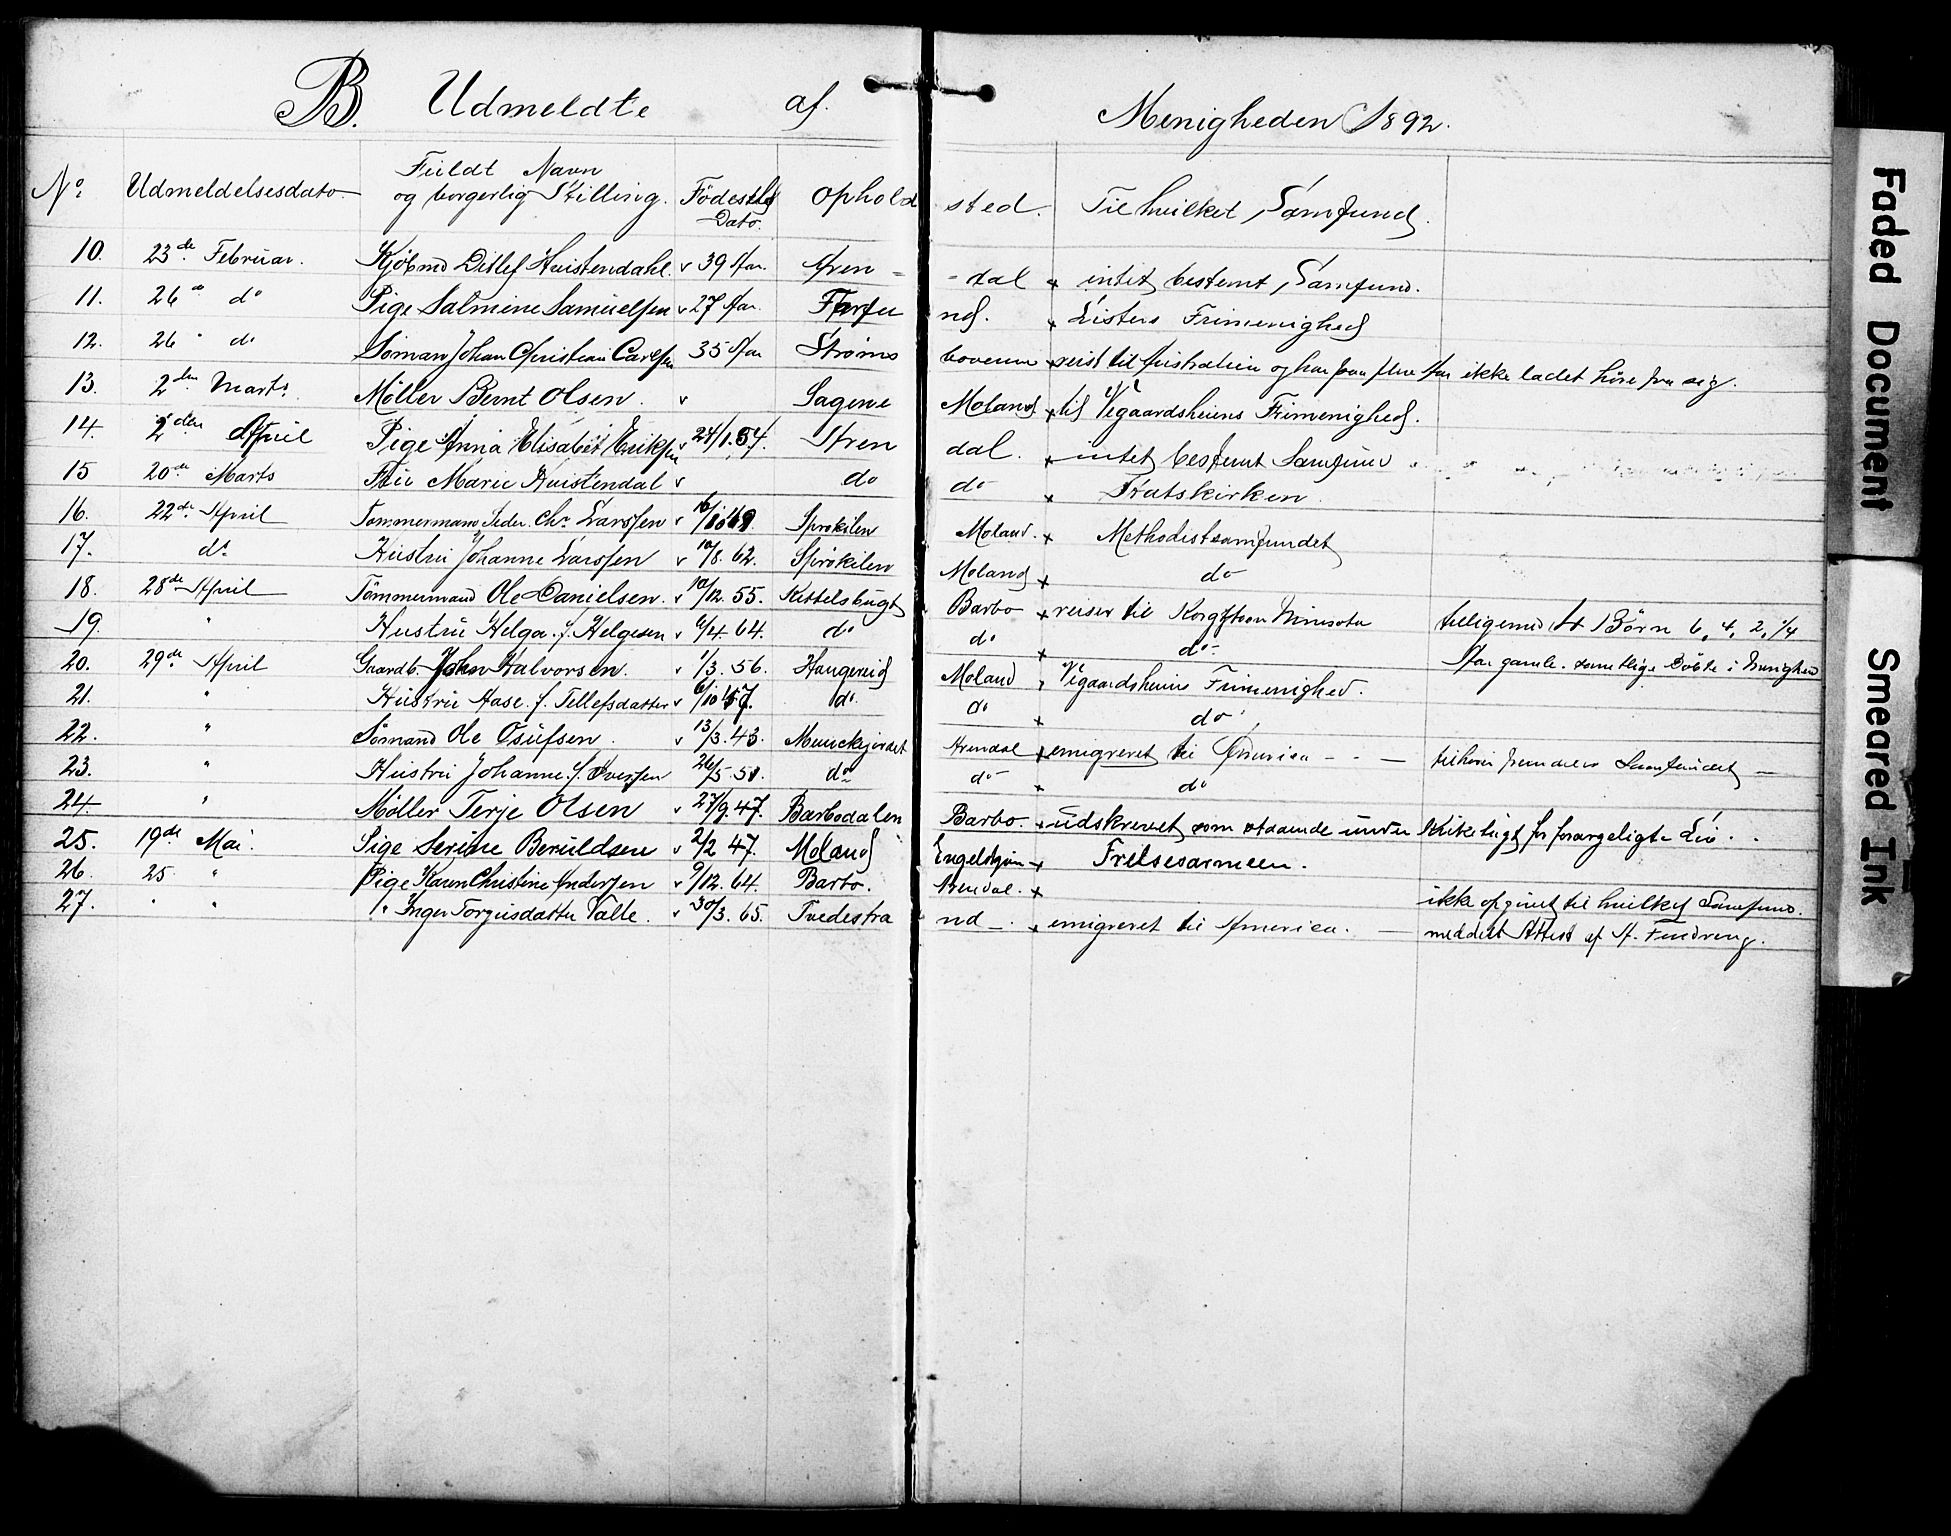 B. Udmeldte af. Menigheden 1892.
No. Udmeldelsesdato. Fuldt Navn og borgerlig Stilling. Födested Dato. Ophold sted. Til hvilket Samfund.
10. 23de Februar. Kjöbmd Ditlef Huistendahl. v 39 Aar. Aren - - dal x intet bestemt Samfund.
11. 26de do Pige Salmine Samuelsen v 27 Aar. nd. x Listers Frimenighed
12. 26 " do Sömand Johan Christian Carlsen 35 Aar Strøms boveren x reist til Australien og har paa flere Aar ikke ladet höre fra sig.
13. 2den Marts. Møller Bernt Olsen. v Sagene Moland x til Vegaardsheiens Frimenighed.
14. 2den April Pige Anna Elisabet Eriksen v 24/1.54. Aren dal. x intet bestemt Samfund
15 20de Marts Frue Marie Huistendal v do do x Statskirken.
16. 22de April Tømmermand Peder Chr. Larssen v Sprøkilen Moland. x Methodistsamfundet
17. do Hustru Johanne Larssen v 10/8. 62. Sprøkilen Moland x do
18. 28de April Tömmermand Ole Danielsen. v 10/12. 55. Kittelsbugt Barbo x reiser til Minesota tilligemed 4 Börn 6, 4, 2, 1/4
19. " Hustru Helga f. Helgesen v 6/4. 64. do do x do - Aar gamle. samtlige döbte i Menighed
20. 29de April Gaardb. John Halvorsen. v 1/3. 56. Haugereid Moland x Vegaardsheiens Frimenighed.
21. " Hustru Aase f. Tellefsdatter v 6/10 57. do. do x do
22. " Sömand Ole Osufsen. v 13/3. 43. Munckejordet Arendal x emigreret til America - - — tilhører fremdeles Samfundet —
23. " Hustru Johanne f. Iverssen 26/5. 51. do do - x do
24. " Møller Terje Olsen v 27/9. 47. Barbodalen Barbo. x udskrevet som staaende under Kirketugt for forargeligt Liv. .
25. 19de Mai. Pige Serine Beruldsen v 2/2 47. Moland x Frelsesarmeen.
26. 25 " Pige Karen Christine Andersen v 9/12. 64. Barbo. Arendal. x ikke opgivet til hvilket Samfund.
27. " " P. Inger Torgusdatter Valle. v 30/3. 65. Tvedestra nd —. x emigreret til America. — meddelt Attest af
Faded Document
Smeared Ink